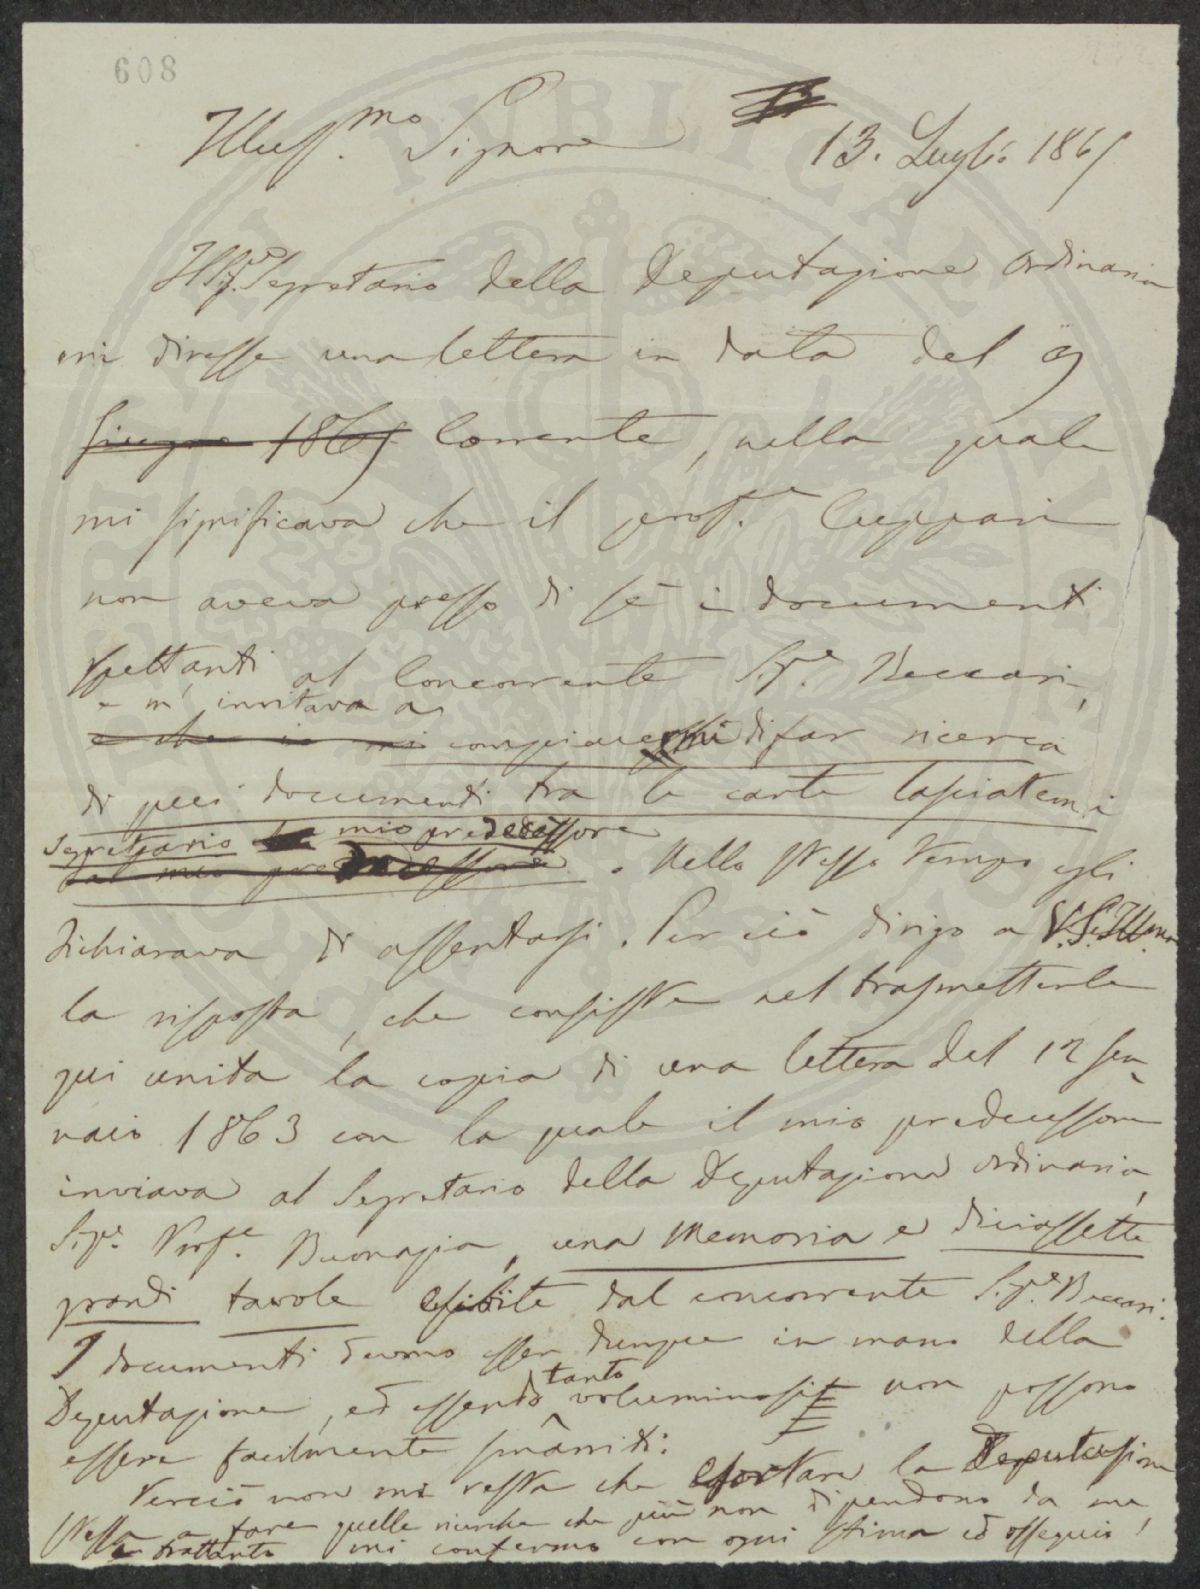 608
Illuss.mo Signore
13. Luglio 1865
Il Sigr. Segretario della Deputazione Ordinaria
mi diresse una lettera in data del 9
Giugno 1865 Corrente, nella quale
mi significava che il prof.e Cuppari
non aveva presso di sé i documenti
spettanti al Concorrente Sig.e Beccari,
e m' invitava a
e che io mi compiacessi di far ricerca
di quei documenti tra le carte lasciatemi
Segretario mio predecessore
dal mio predecessore. Nello stesso tempo egli
dichiarava di assentarsi. Per ciò dirigo a V. S. Illma
la risposta, che consiste nel trasmetterle
qui unita la copia di una lettera del 12 Gen
naio 1863 con la quale il mio predecessore
inviava al Segretario della Deputazione ordinaria,
Sig.e Prof.e Buonazia, una Memoria e diciassette
grandi tavole esibite dal concorrente Sig.e Beccari.
I documenti devono esser dunque in mano della
tanto
Deputazione, ed essendo voluminosi non possono
essere facilmente smarriti.
Perciò non mi resta che esortare la Deputazione
stessa a fare quelle ricerche che più non dipendono da me,
e trattanto mi confermo con ogni stima ed ossequio